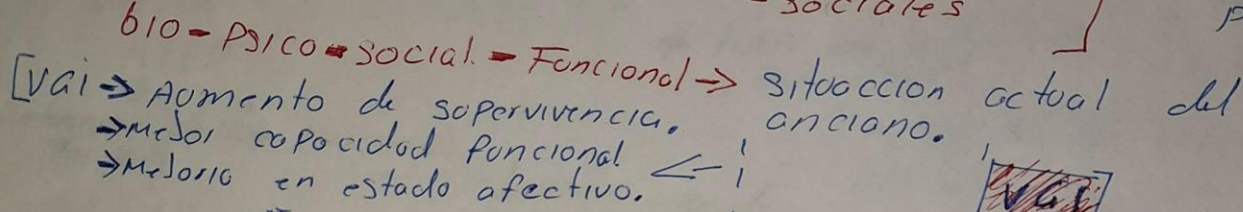 - sociales
bio-Psico-social-Funcional → situaccion actual del anciano.
[Vai → Aumento de supervivencia.
→ Mejor capacidad funcional ←
→ Mejoria en estado afectivo.